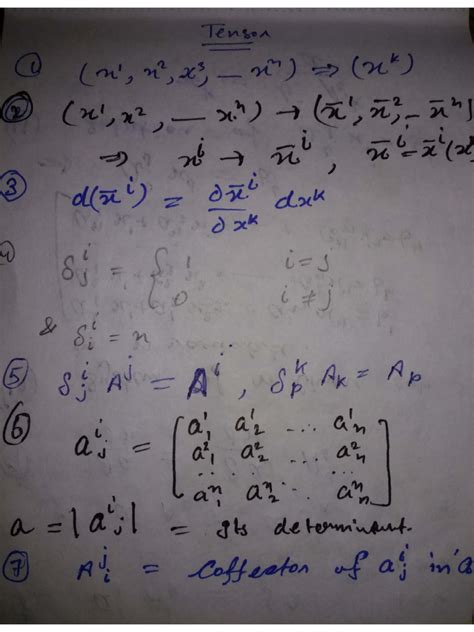 Tensor
① (x¹, x², x³, — xⁿ) ⇒ (xᵏ)
② (x¹, x², — xⁿ) → (x̄¹, x̄², – x̄ⁿ)
⇒ xⁱ → x̄ⁱ, x̄ⁱ = x̄ⁱ(x
③ d(x̄ⁱ) = ∂x̄ⁱ/∂xᵏ dxᵏ
4) δⁱⱼ = { 1 i = j
0 i ≠ j
& δⁱᵢ = n
⑤ δⁱⱼ Aʲ = Aⁱ, δᵏₚ Aₖ = Aₚ
⑥ aⁱⱼ = [ a¹₁ a¹₂ ... a¹ₙ
a²₁ a²₂ ... a²ₙ
... ... ...
aⁿ₁ aⁿ₂ ... aⁿₙ ]
a = |aⁱⱼ| = its determinant.
⑦ Aʲᵢ = Coffector of aⁱⱼ in a